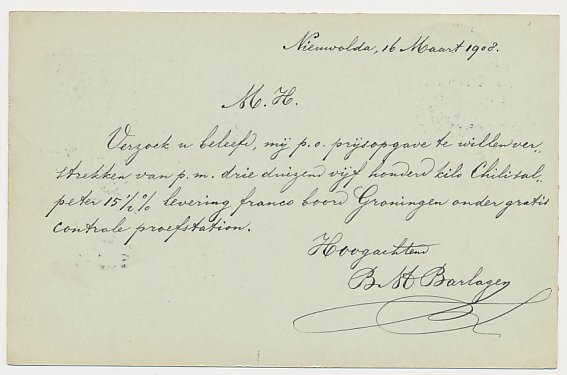 Nieuwolda, 16 Maart 1908.
M. H.
Verzoek u beleefd, mij p. o. prijsopgave te willen ver-
strekken van p. m. drie duizend vijf honderd kilo Chilisal-
peter 15 1/2 % levering franco boord Groningen onder gratis
controle proefstation.
Hoogachtend
B. H Barlagen